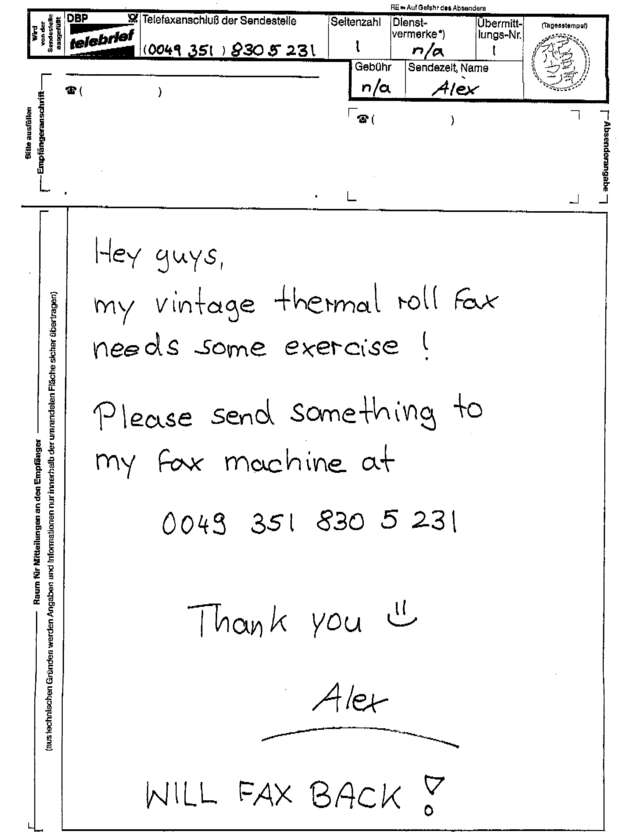 RE = Auf Gefahr des Absenders
Wird von der Sendestelle ausgefüllt
DBP
telebrief
Telefaxanschluß der Sendestelle
(0049 351 ) 830 5 231
Seitenzahl
1
Dienst-
vermerke*)
n/a
Übermitt-
lungs-Nr.
1
(Tagesstempel)
Gebühr
n/a
Sendezeit, Name
Alex
Bitte ausfüllen
Empfängeranschrift
☎( )
☎( )
Absenderangabe
Raum für Mitteilungen an den Empfänger
(aus technischen Gründen werden Angaben und Informationen nur innerhalb der umrandeten Fläche sicher übertragen)
Hey guys,
my vintage thermal roll fax
needs some exercise !
Please send something to
my fax machine at
0049 351 830 5 231
Thank you
Alex
WILL FAX BACK !